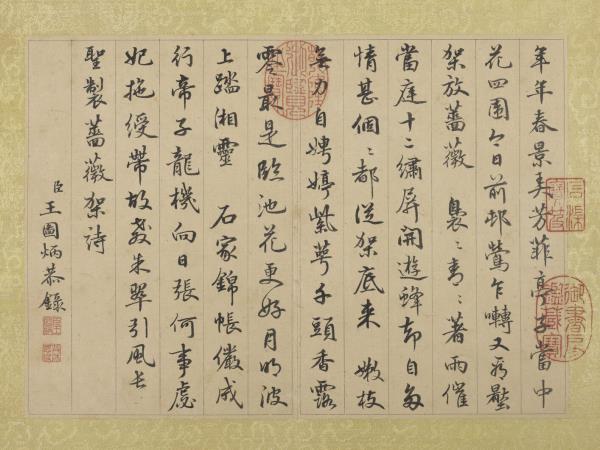 年年春景美芳菲亭子當中
花四圍今日前邨鶯乍囀又看盤
架放薔薇　裊〻青〻著雨催
當庭十二繡屏開遊蜂却自多
情甚個〻都從架底來　嫩枝
無力自娉婷紫萼千頭香露
零最是臨池花更好月明波
上踏湘靈　石家錦帳儼成
行帝子龍機向日張何事虙
妃拖綬帶故教朱翠引風長
聖製薔薇架詩
臣王圖炳恭錄